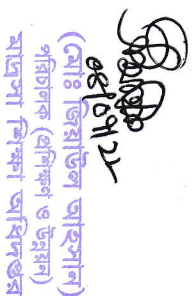 ০৪/০৭/২২
(মোঃ জিয়াউল আহসান)
পরিচালক (প্রশিক্ষণ ও উন্নয়ন)
মাদ্রাসা শিক্ষা অধিদপ্তর